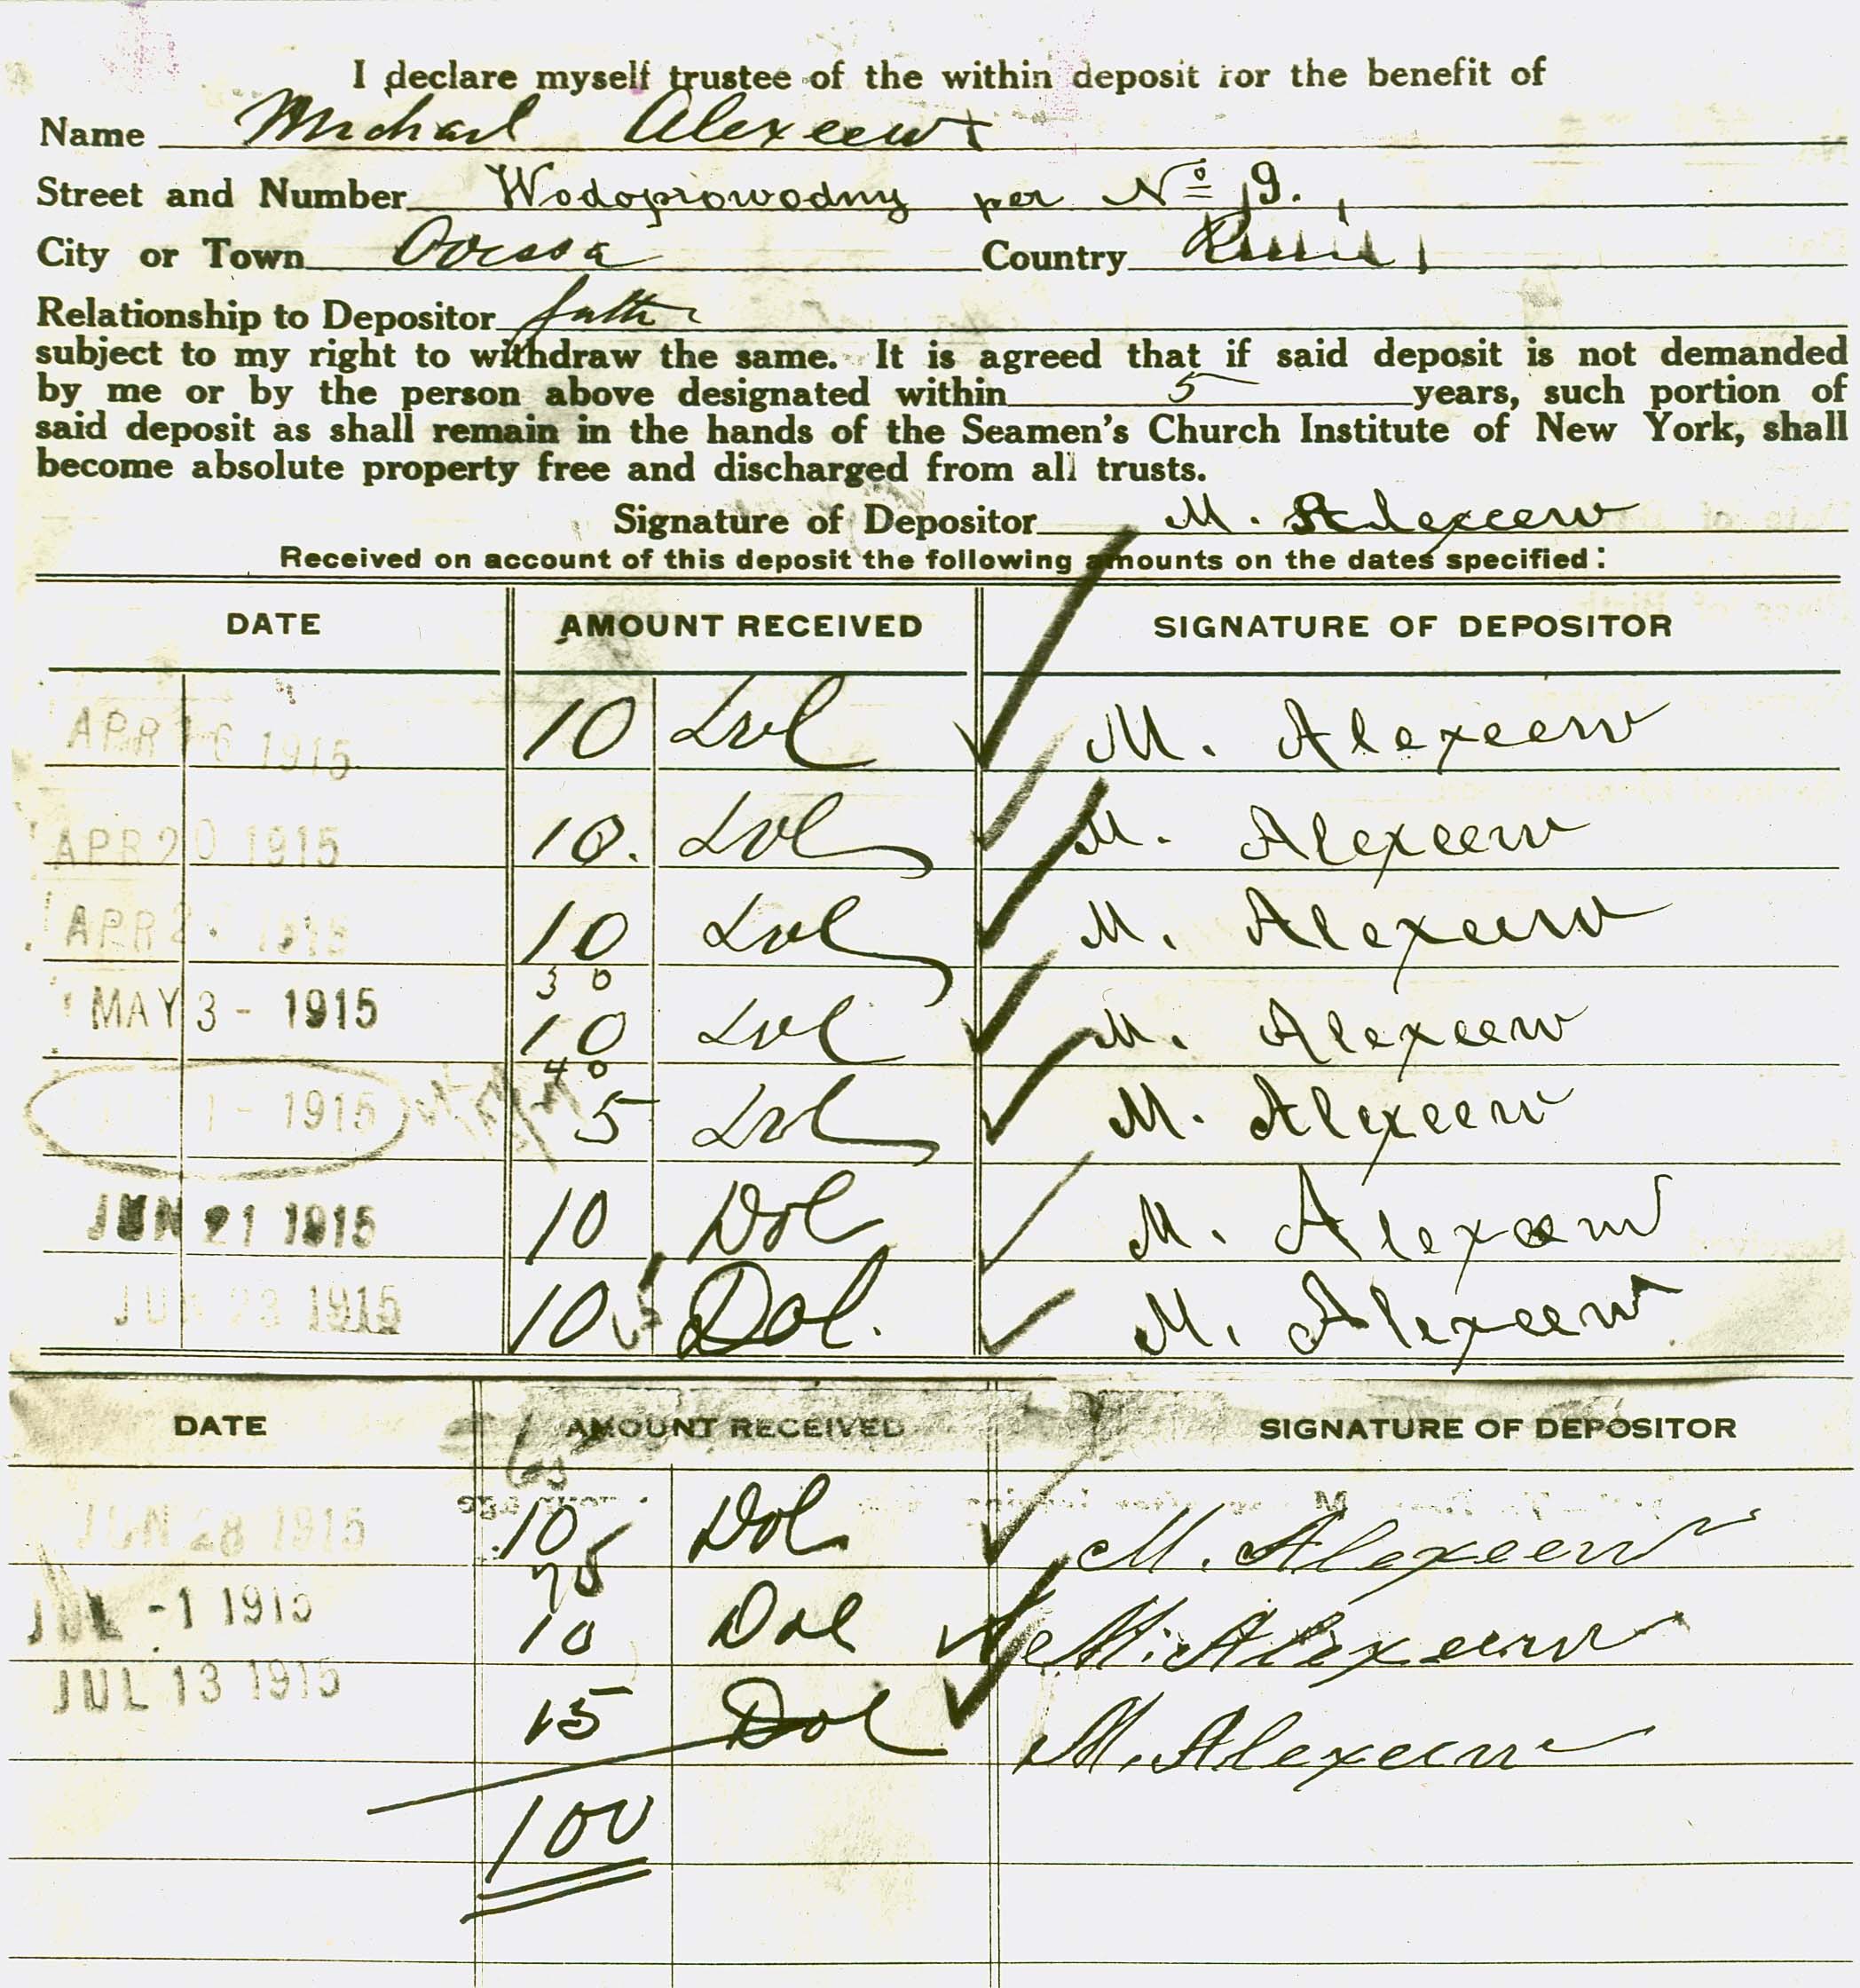 I declare myself trustee of the within deposit for the benefit of
Name Michael Alexeew
Street and Number Wodoprowodny per No 19.
City or Town Odessa Country Russia
Relationship to Depositor father
subject to my right to withdraw the same. It is agreed that if said deposit is not demanded
by me or by the person above designated within 5 years, such portion of
said deposit as shall remain in the hands of the Seamen's Church Institute of New York, shall
become absolute property free and discharged from all trusts.
Signature of Depositor M. Alexeew
Received on account of this deposit the following amounts on the dates specified:
DATE AMOUNT RECEIVED SIGNATURE OF DEPOSITOR
APR 16 1915 10 Dol M. Alexeew
APR 20 1915 10. Dol M. Alexeew
APR 2 1915 10 Dol M. Alexeew
30
MAY 3 - 1915 10 Dol M. Alexeew
40
1 - 1915 5 Dol M. Alexeew
JUN 21 1915 10 Dol M. Alexeew
JUN 23 1915 10 Dol. M. Alexeew
DATE AMOUNT RECEIVED SIGNATURE OF DEPOSITOR
65
JUN 28 1915 10 Dol M. Alexeew
75
JUL -1 1915 10 Dol M. Alexeew
JUL 13 1915 15 Dol M. Alexeew
100